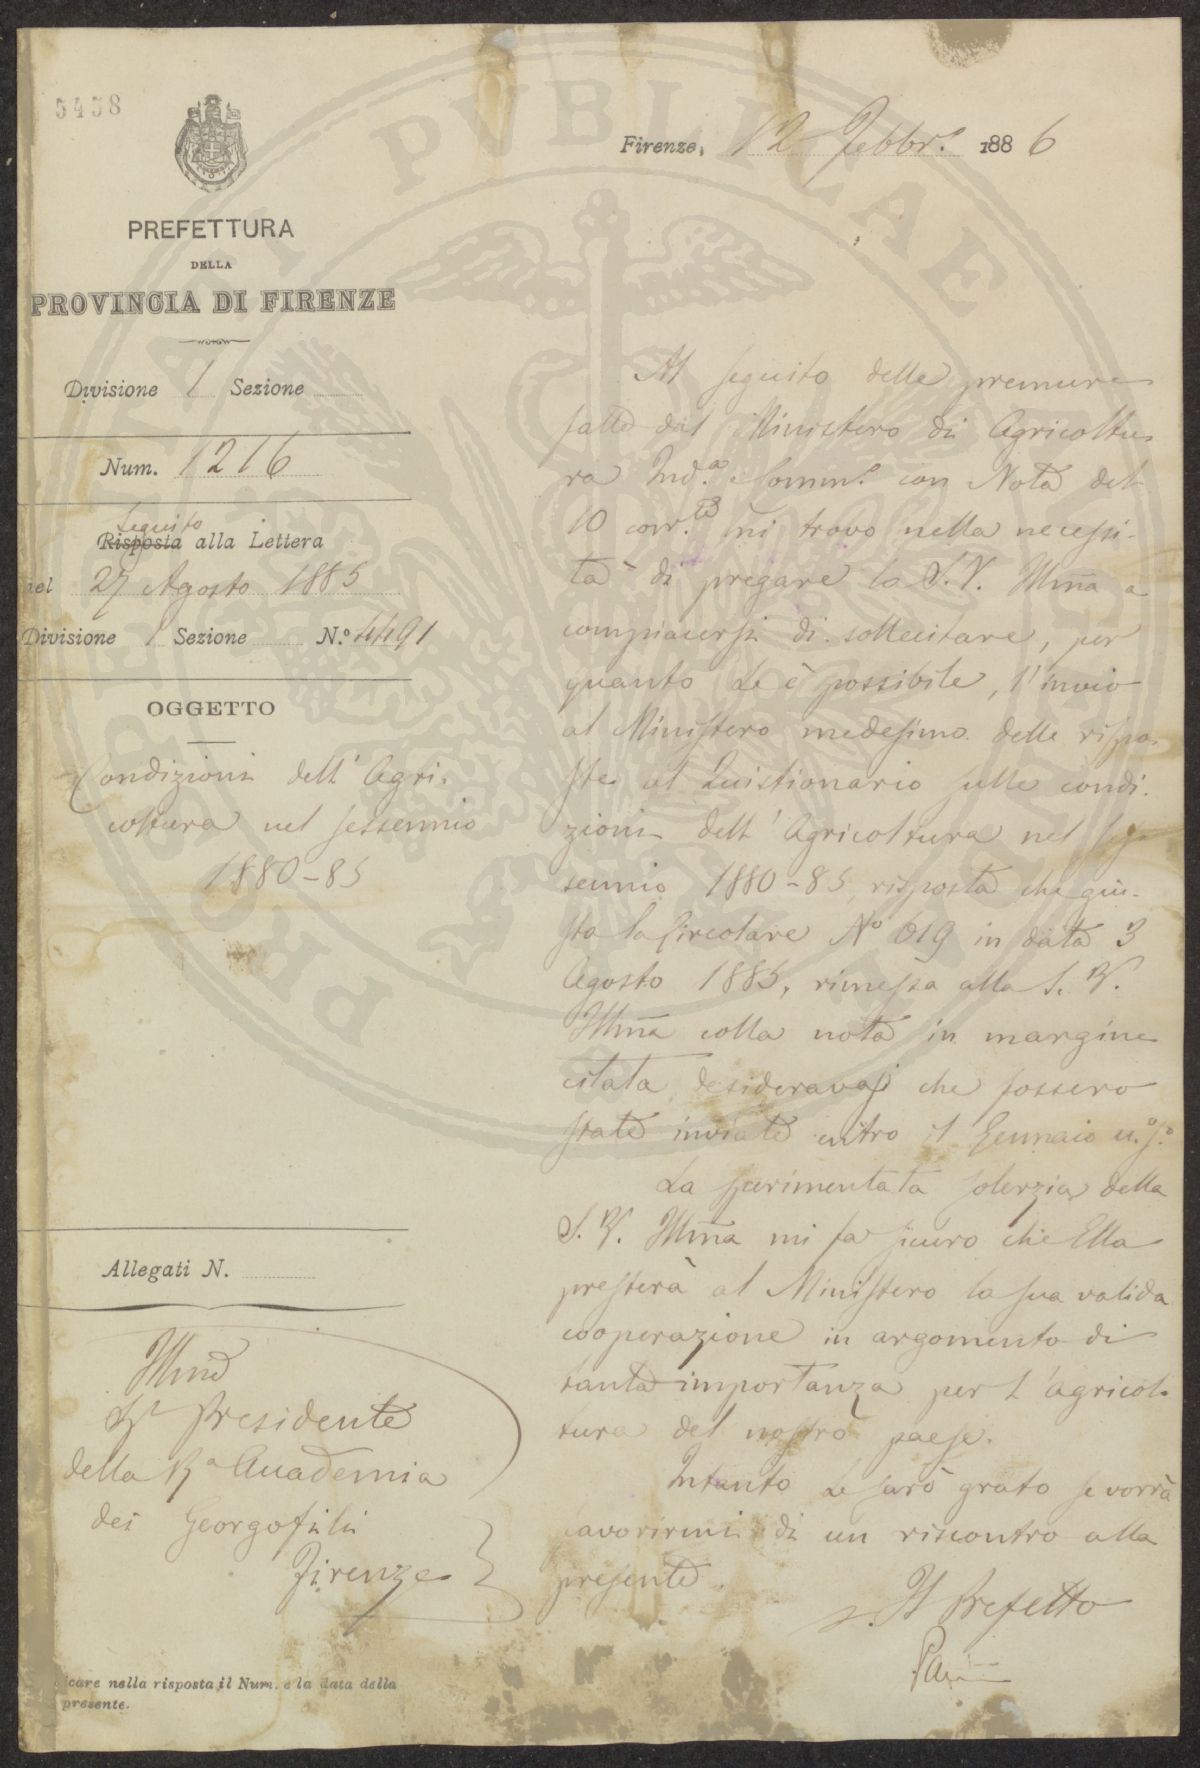 5458
Firenze, 12 Febbr.º 1886
PREFETTURA
DELLA
PROVINCIA DI FIRENZE
Divisione 1 Sezione
Num. 1216
Seguito
Risposta alla Lettera
del 27 Agosto 1885
Divisione 1 Sezione N.º 4491
OGGETTO
Condizioni dell'Agri-
coltura nel sessennio
1880-85
Allegati N.
Illmo
Sr. Presidente
della Rª Accademia
dei Georgofili
Firenze
dicare nella risposta il Num. e la data della
presente.
Al seguito delle premure
fatte dal Ministero di Agricoltu-
ra Ind.ª Comm.º con Nota del
10 corr.te mi trovo nella necessi-
tà di pregare la S.V. Illma a
compiacersi di sollecitare, per
quanto Le è possibile, l'invio
al Ministero medesimo delle rispo-
ste al Quistionario sulle condi-
zioni dell'Agricoltura nel ses-
sennio 1880-85, risposte che giu-
sta la Circolare Nº 619 in data 3
Agosto 1885, rimessa alla S.V.
Illma colla nota in margine
citata, desideravasi che fossero
state inviate entro il Gennaio u.º s.º
La sperimentata solerzia della
S.V. Illma mi fa sicuro che Ella
presterà al Ministero la sua valida
cooperazione in argomento di
tanta importanza per l'agricol-
tura del nostro paese.
Intanto Le sarò grato se vorrà
favorirmi di un riscontro alla
presente.
Il Prefetto
PERPETVITATI PVBLICAE